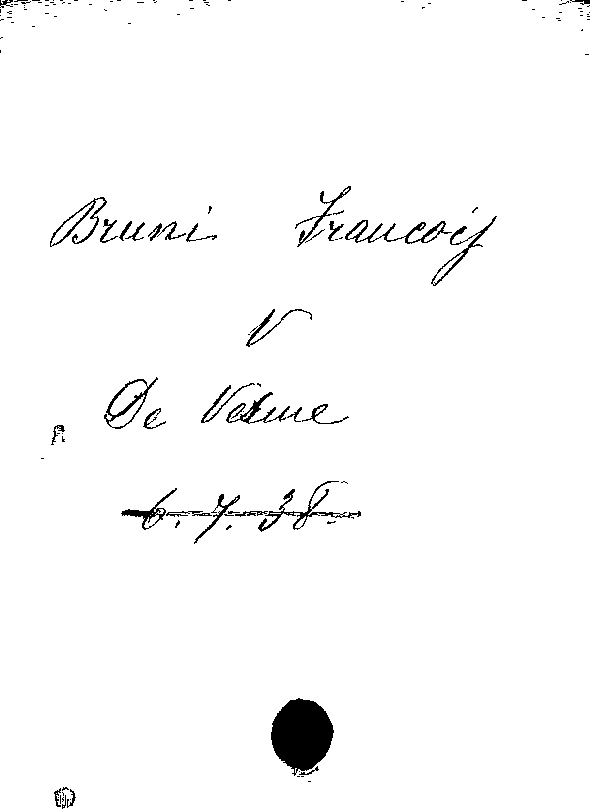 Bruni Francois
V
De Vesme
6.7.38.